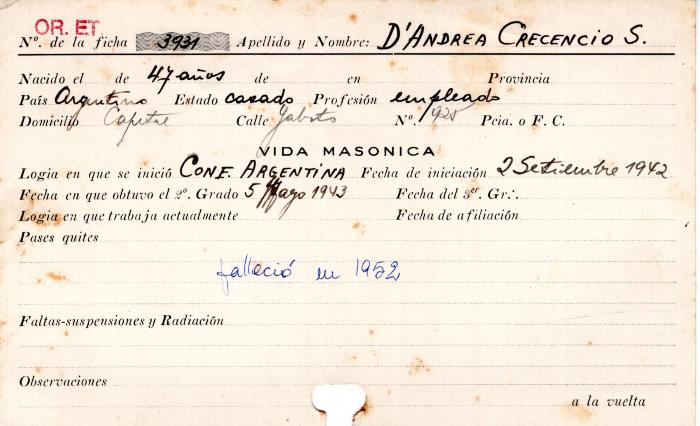 OR. ET
Nº. de la ficha 3931 Apellido y Nombre: D'ANDREA CRECENCIO S.
Nacido el de 47 años de en Provincia
País Argentino Estado casado Profesión empleado
Domicilio Capital Calle Gaboto Nº. 925 Pcia. o F. C.
VIDA MASONICA
Logia en que se inició CONF. ARGENTINA Fecha de iniciación 2 Setiembre 1942
Fecha en que obtuvo el 2º. Grado 5 1943 Fecha del 3er. Gr∴.
Logia en que trabaja actualmente Fecha de afiliación
Pases quites
falleció en 1952
Faltas-suspensiones y Radiación
Observaciones
a la vuelta